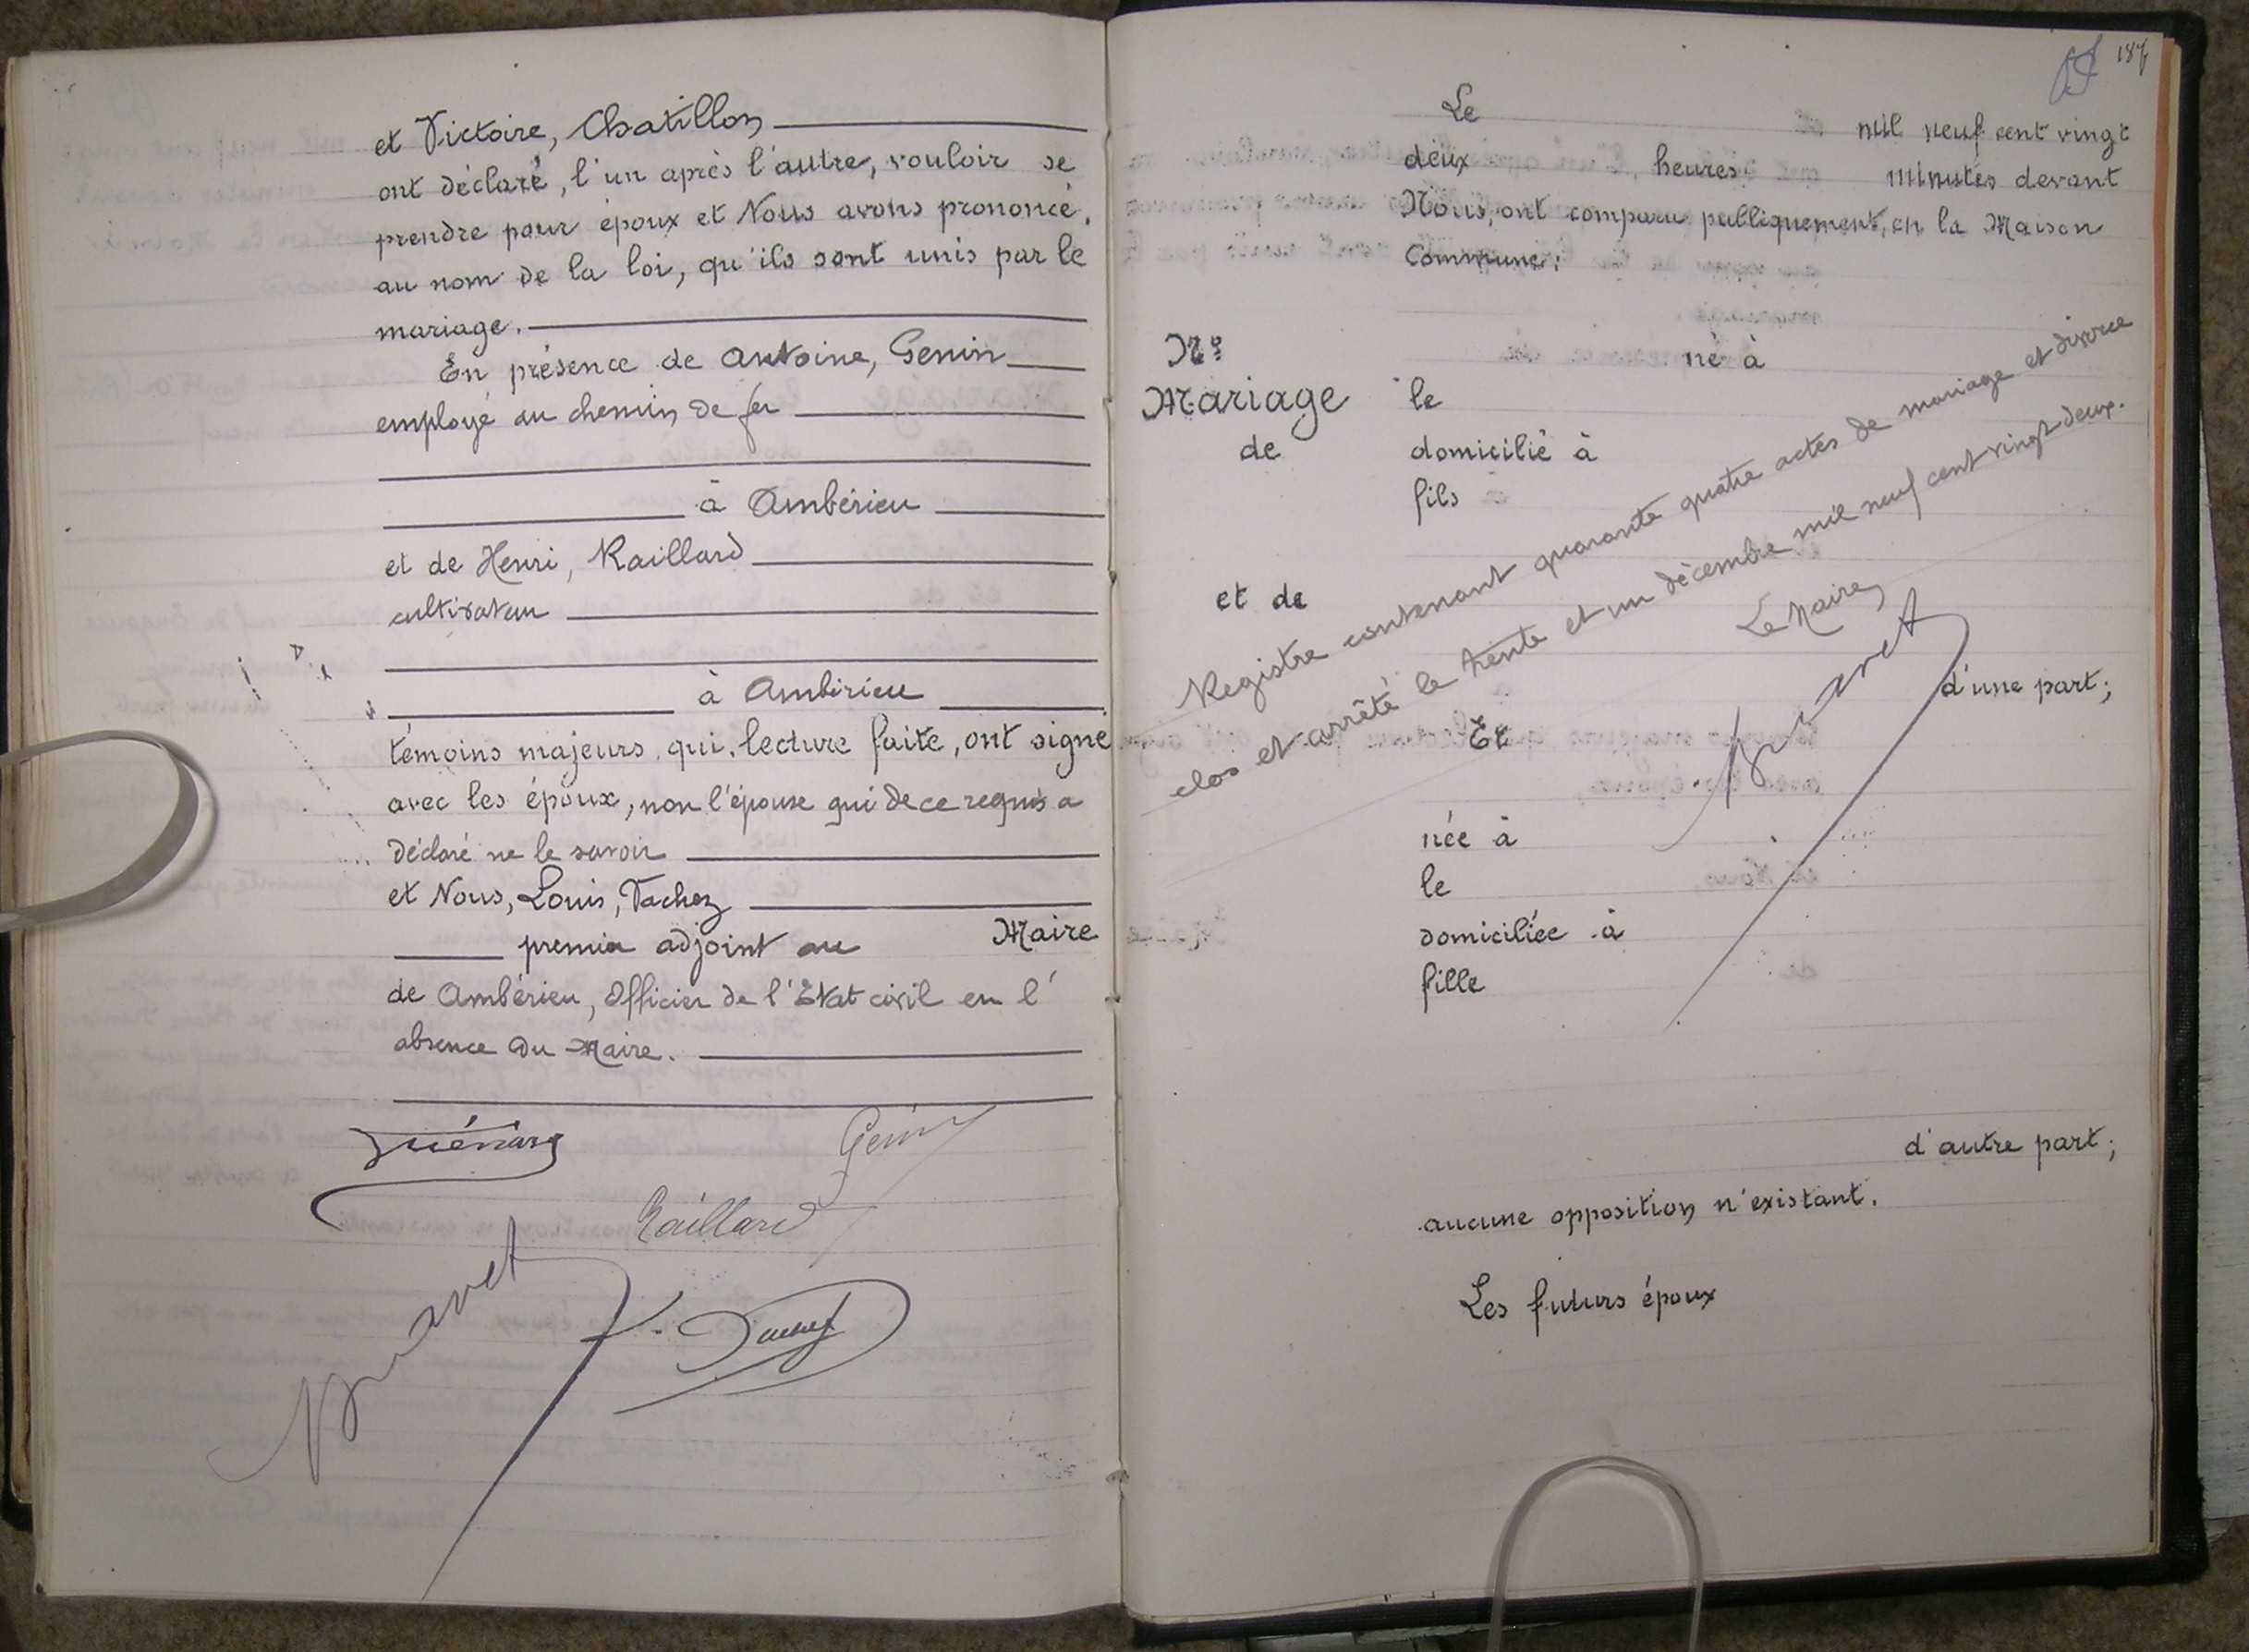 et Victoire, Chatillon
ont déclaré, l'un après l'autre, vouloir se
prendre pour époux et Nous avons prononcé,
au nom de la loi, qu'ils sont unis par le
mariage.
En présence de Antoine, Genin
employé au chemin de fer
à Ambérieu
et de Henri, Raillard
cultivateur
à Ambérieu
témoins majeurs, qui, lecture faite, ont signé
avec les époux, non l'épouse qui de ce requis a
déclaré ne le savoir
et Nous, Louis, Tachez
premier adjoint au Maire
de Ambérieu, Officier de l'Etat civil en l'
absence du Maire.
Genin
Raillard
187
Le mil neuf cent vingt
deux heures minutes devant
Nous, ont comparu publiquement, en la Maison
Commune:
Nº né à
Mariage le
de domicilié à
fils
et de
Registre contenant quarante quatre actes de mariage et divorce
clos et arrêté le trente et un décembre mil neuf cent vingt deux.
Le Maire,
d'une part;
Et
née à
le
domiciliée à
fille
d'autre part;
aucune opposition n'existant.
Les futurs époux